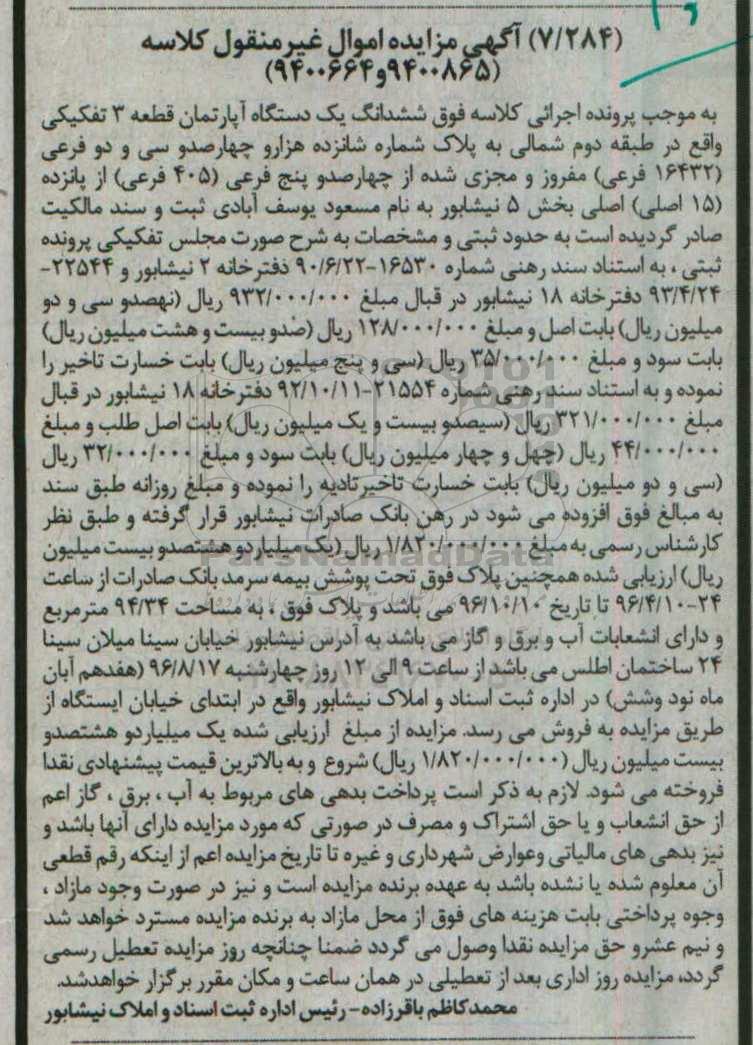 (۷/۲۸۴) آگهی مزایده اموال غیرمنقول کلاسه
(۹۴۰۰۸۶۵و۹۴۰۰۶۶۴)
به موجب پرونده اجرائی کلاسه فوق ششدانگ یک دستگاه آپارتمان قطعه ۳ تفکیکی
واقع در طبقه دوم شمالی به پلاک شماره شانزده هزارو چهارصدو سی و دو فرعی
(۱۶۴۳۲ فرعی) مفروز و مجزی شده از چهارصدو پنج فرعی (۴۰۵ فرعی) از پانزده
(۱۵ اصلی) اصلی بخش ۵ نیشابور به نام مسعود یوسف آبادی ثبت و سند مالکیت
صادر گردیده است به حدود ثبتی و مشخصات به شرح صورت مجلس تفکیکی پرونده
ثبتی ، به استناد سند رهنی شماره ۱۶۵۳۰-۹۰/۶/۲۲ دفترخانه ۲ نیشابور و ۲۲۵۴۴-
۹۳/۴/۲۴ دفترخانه ۱۸ نیشابور در قبال مبلغ ۹۳۲/۰۰۰/۰۰۰ ریال (نهصدو سی و دو
میلیون ریال) بابت اصل و مبلغ ۱۲۸/۰۰۰/۰۰۰ ریال (صدو بیست و هشت میلیون ریال)
بابت سود و مبلغ ۳۵/۰۰۰/۰۰۰ ریال (سی و پنج میلیون ریال) بابت خسارت تاخیر را
نموده و به استناد سند رهنی شماره ۲۱۵۵۴-۹۲/۱۰/۱۱ دفترخانه ۱۸ نیشابور در قبال
مبلغ ۳۲۱/۰۰۰/۰۰۰ ریال (سیصدو بیست و یک میلیون ریال) بابت اصل طلب و مبلغ
۴۴/۰۰۰/۰۰۰ ریال (چهل و چهار میلیون ریال) بابت سود و مبلغ ۳۲/۰۰۰/۰۰۰ ریال
(سی و دو میلیون ریال) بابت خسارت تاخیرتادیه را نموده و مبلغ روزانه طبق سند
به مبالغ فوق افزوده می شود در رهن بانک صادرات نیشابور قرار گرفته و طبق نظر
کارشناس رسمی به مبلغ ۱/۸۲۰/۰۰۰/۰۰۰ ریال (یک میلیاردو هشتصدو بیست میلیون
ریال) ارزیابی شده همچنین پلاک فوق تحت پوشش بیمه سرمد بانک صادرات از ساعت
۲۴-۹۶/۴/۱۰ تا تاریخ ۹۶/۱۰/۱۰ می باشد و پلاک فوق ، به مساحت ۹۴/۳۴ مترمربع
و دارای انشعابات آب و برق و گاز می باشد به آدرس نیشابور خیابان سینا میلان سینا
۲۴ ساختمان اطلس می باشد از ساعت ۹ الی ۱۲ روز چهارشنبه ۹۶/۸/۱۷ (هفدهم آبان
ماه نود وشش) در اداره ثبت اسناد و املاک نیشابور واقع در ابتدای خیابان ایستگاه از
طریق مزایده به فروش می رسد. مزایده از مبلغ ارزیابی شده یک میلیاردو هشتصدو
بیست میلیون ریال (۱/۸۲۰/۰۰۰/۰۰۰ ریال) شروع و به بالاترین قیمت پیشنهادی نقدا
فروخته می شود. لازم به ذکر است پرداخت بدهی های مربوط به آب ، برق ، گاز اعم
از حق انشعاب و یا حق اشتراک و مصرف در صورتی که مورد مزایده دارای آنها باشد و
نیز بدهی های مالیاتی وعوارض شهرداری و غیره تا تاریخ مزایده اعم از اینکه رقم قطعی
آن معلوم شده یا نشده باشد به عهده برنده مزایده است و نیز در صورت وجود مازاد ،
وجوه پرداختی بابت هزینه های فوق از محل مازاد به برنده مزایده مسترد خواهد شد
و نیم عشرو حق مزایده نقدا وصول می گردد ضمنا چنانچه روز مزایده تعطیل رسمی
گردد، مزایده روز اداری بعد از تعطیلی در همان ساعت و مکان مقرر برگزار خواهدشد.
محمدکاظم باقرزاده - رئیس اداره ثبت اسناد و املاک نیشابور
ParsNamadData